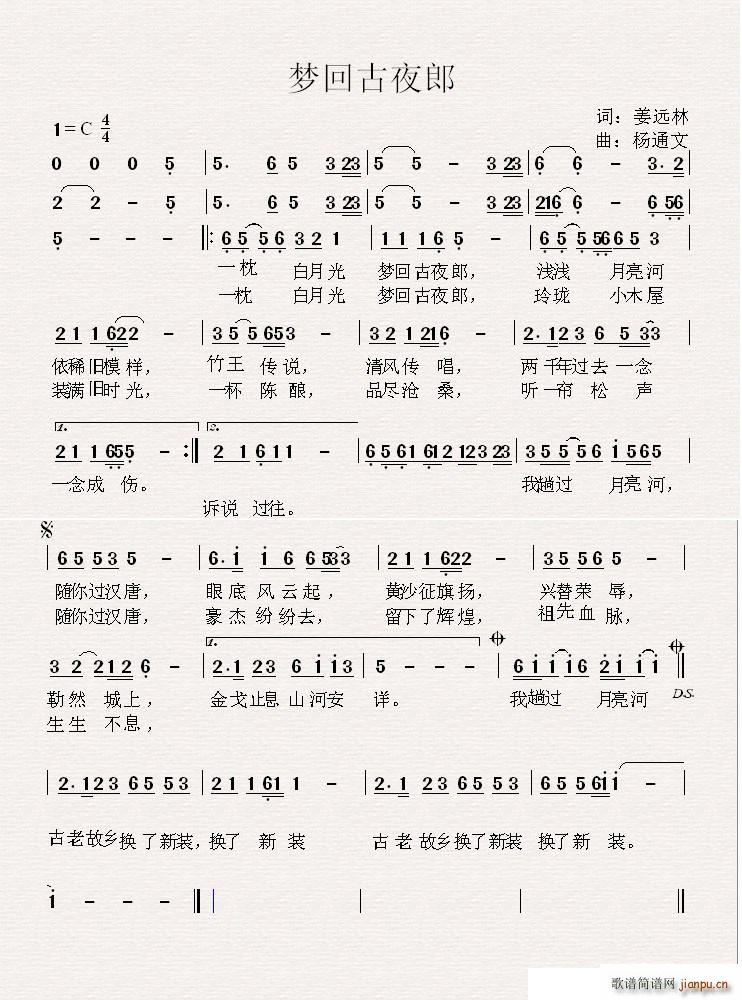 梦回古夜郎
1=C 4/4
词：姜远林
曲：杨通文
0 0 0 5 | 5. 6 5 3 23 | 5 5 - 3 23 | 6 6 - 3. 2 |
2 2 - 5 | 5. 6 5 3 23 | 5 5 - 3 23 | 216 6 - 6 56 |
5 - - - |: 6 5 5 6 3 2 1 | 1 1 1 6 5 - | 6 5 5 56 6 5 3 |
一枕 白月光 梦回古夜郎， 浅浅 月亮河
一枕 白月光 梦回古夜郎， 玲珑 小木屋
2 1 1 622 - | 3 5 5 653 - | 3 2 1 216 - | 2. 12 3 6 5 33 |
依稀旧模样， 竹王 传说， 清风传 唱， 两千年过去一念
装满旧时光， 一杯 陈酿， 品尽沧 桑， 听一帘 松 声
1. 2.
2 1 1 655 - :| 2 1 6 1 1 - | 6 5 6 1 6 1 2 1 2 3 2 3 | 3 5 5 5 6 i 5 6 5 |
一念成 伤。 我趟过 月亮河，
诉说 过往。
| 6 5 5 3 5 - | 6. i i 6 6 533 | 2 1 1 622 - | 3 5 5 6 5 - |
随你过汉唐， 眼底 风云起， 黄沙征旗扬， 兴替荣 辱，
随你过汉唐， 豪杰纷纷去， 留下了辉煌， 祖先血 脉，
1.
3 2 2 1 2 6 - | 2. 1 2 3 6 i i 3 | 5 - - - | 6 i i i 6 2 i i i ||
勒然 城上， 金戈止息 山河安 详。 我趟过 月亮河 D.S.
生生 不息，
| 2. 1 2 3 6 5 5 3 | 2 1 1 6 1 1 - | 2. 1 2 3 6 5 5 3 | 6 5 5 6 i i - |
古老故乡换了新装，换了 新 装 古老 故乡换了新装 换了新 装。
i - - - || | | ||
歌谱简谱网
jianpu.cn